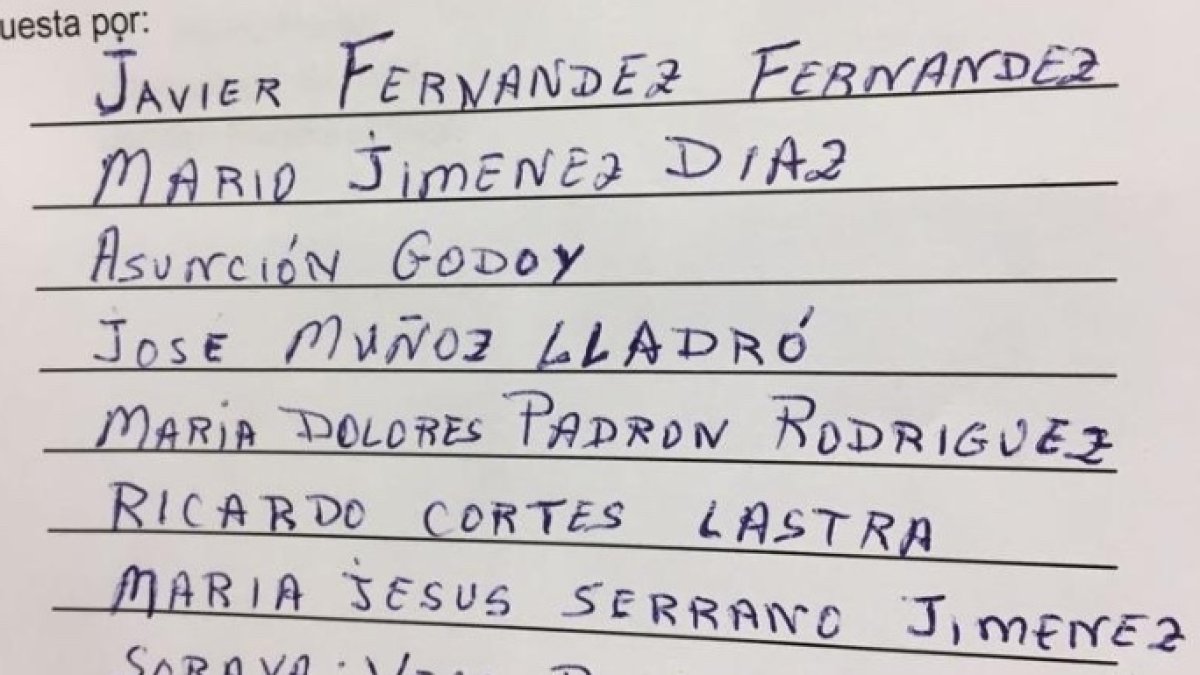 uesta por:
JAVIER FERNANDEZ FERNANDEZ
MARIO JIMENEZ DIAZ
ASUNCIÓN GODOY
JOSE MUÑOZ LLADRÓ
MARIA DOLORES PADRON RODRIGUEZ
RICARDO CORTES LASTRA
MARIA JESUS SERRANO JIMENEZ
SORAYA